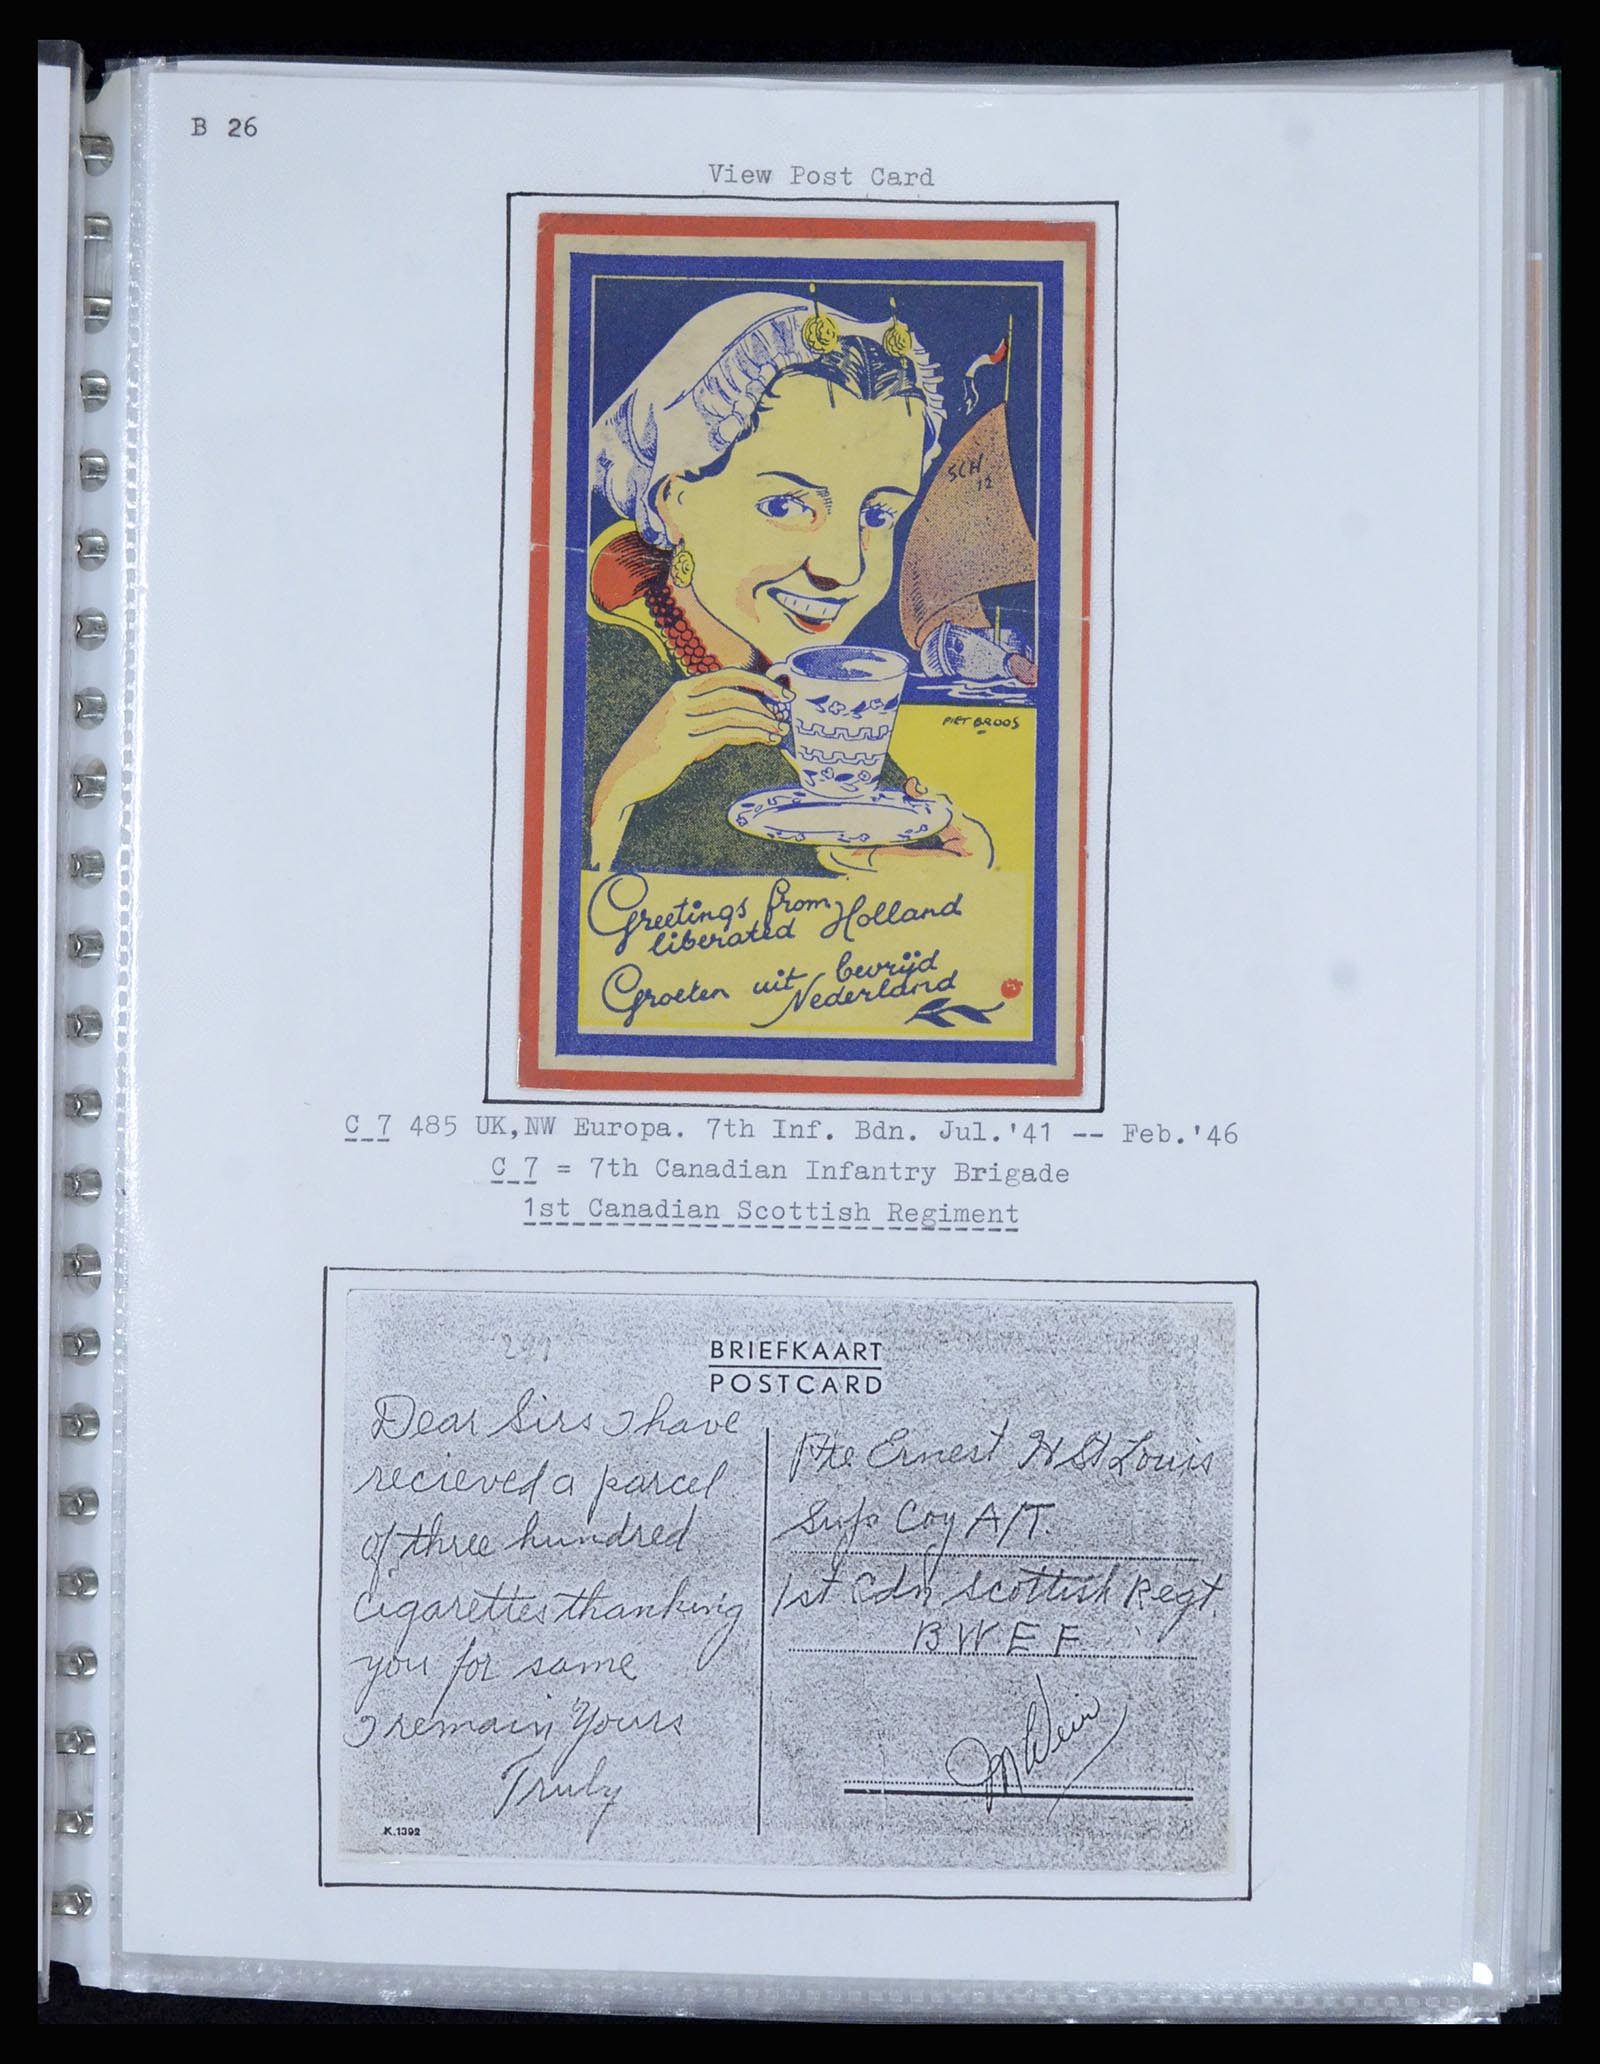 B 26
View Post Card
SCH
12
PIET BROOS
Greetings from Holland
liberated
Groeten uit bevrijd
Nederland
C 7 485 UK,NW Europa. 7th Inf. Bdn. Jul.'41 -- Feb.'46
C 7 = 7th Canadian Infantry Brigade
1st Canadian Scottish Regiment
291
BRIEFKAART
POSTCARD
Dear Sirs I have
recieved a parcel
of three hundred
cigarettes thanking
you for same
I remain Yours
Truly
K.1392
Pte Ernest H St Louis
Sup Coy A/T.
1st Cdn Scottish Regt.
B W E F